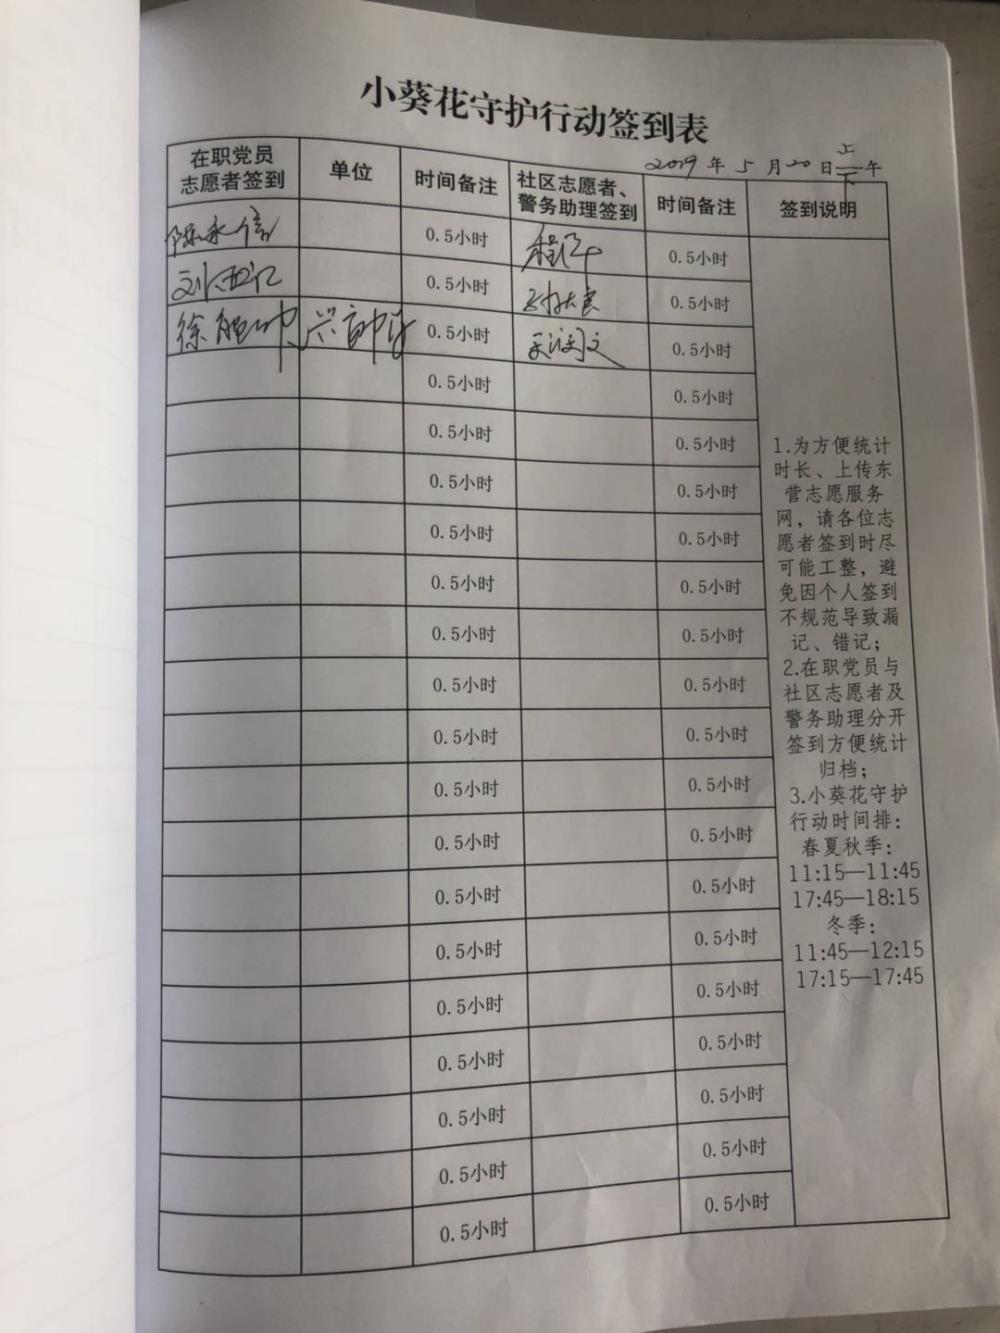 小葵花守护行动签到表
2019年5月20日上/下午
在职党员
志愿者签到
单位
时间备注
社区志愿者、
警务助理签到
时间备注
签到说明
陈永信
0.5小时
0.5小时
0.5小时
0.5小时
徐
0.5小时
0.5小时
0.5小时
0.5小时
0.5小时
0.5小时
0.5小时
0.5小时
0.5小时
0.5小时
0.5小时
0.5小时
0.5小时
0.5小时
0.5小时
0.5小时
0.5小时
0.5小时
0.5小时
0.5小时
0.5小时
0.5小时
0.5小时
0.5小时
0.5小时
0.5小时
0.5小时
0.5小时
0.5小时
0.5小时
0.5小时
0.5小时
0.5小时
0.5小时
0.5小时
0.5小时
0.5小时
0.5小时
1.为方便统计
时长、上传东
营志愿服务
网，请各位志
愿者签到时尽
可能工整，避
免因个人签到
不规范导致漏
记、错记；
2.在职党员与
社区志愿者及
警务助理分开
签到方便统计
归档；
3.小葵花守护
行动时间排：
春夏秋季：
11:15—11:45
17:45—18:15
冬季：
11:45—12:15
17:15—17:45